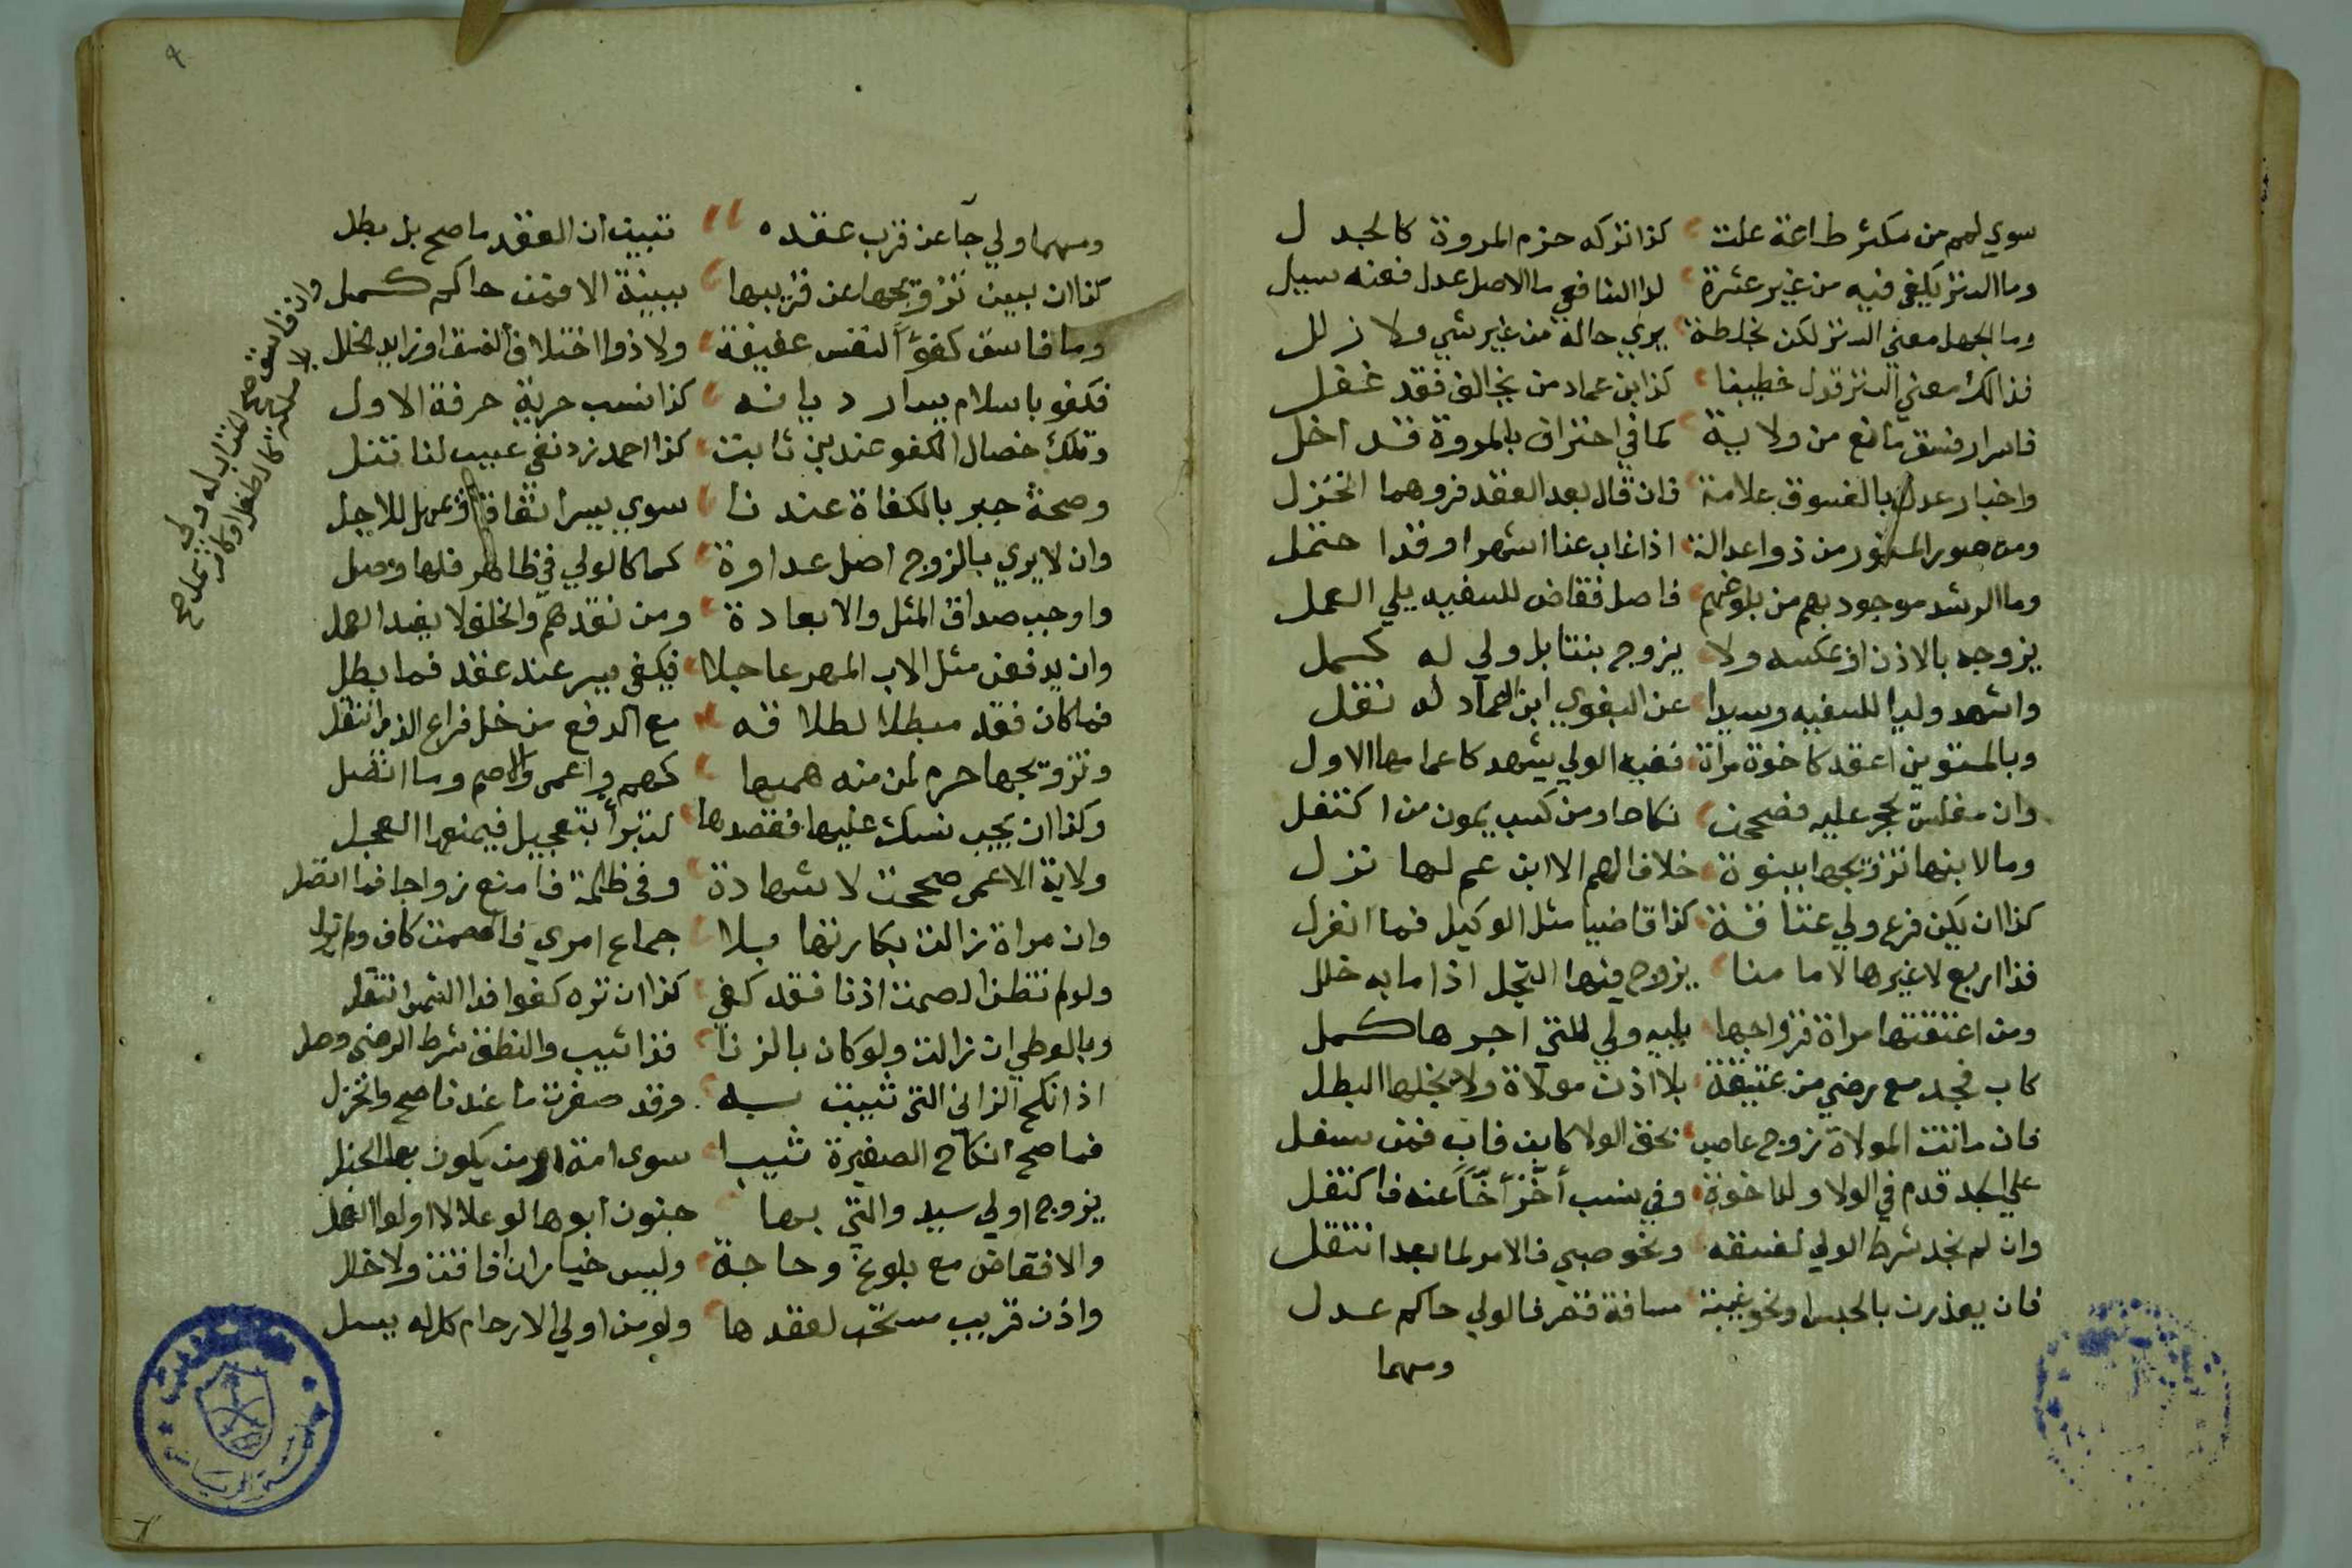 سوي لهم من مكثر طاعة علت كذا تركه حزم المروة كالجدل
وما الستر يكفي فيه من غير عشرة لدا الشافعي ما الاصل عدل فعنه سيل
وما الجهل معني الستر لكن بخلطة يري حاله من غير شي ولا زلل
فذالك معني الستر قول خطيبنا كذا ابن عماد من يخالف فقد غفل
فاسرار فسق مانع من ولاية كما في احتراف بالمروة قد اخل
واخبار عدل بالفسوق علامة فان قال بعد العقد فزوهما انخزل
ومن صور المستور من ذوا عدالة اذا غاب عنا اشهرا وقدا حتمل
وما الرشد موجود بهم من بلوغهم فاصل فقاض للسفيه يلي العمل
يزوجه بالاذن او عكسه ولا يزوج بنتا بل ولي له كمل
واشهد وليا للسفيه وسيدا عن البغوي ابن العماد له نقل
وبالمستوين اعقد كاخوة مراة ففيه الولي يشهد كاعمامها الاول
وان مفلس يحجر عليه فصححن نكاحا ومن كسب يمون من اكتفل
وما لابنها تزويجها ببنوة خلافا لهم الا ابن عم لها نزل
كذا ان يكن فرع ولي عتاقة كذا قاضيا مثل الوكيل فما انغزل
فذا اربع لا غيرها لامامنا يزوج فيها النجل اذا ما به خلل
ومن اعتقتها مراة فزواجها يليه ولي للتي اجرها كمل
كاب فجد مع رضي من عتيقة بلا اذن مولاة ولا يخلها البطل
فان ماتت المولاة زوج عاصب بحق الولا كابن فاب فمن سفل
علي الجد قدم في الولا ولد اخوة وفي نسب أخّر أخاً عنه فاكتفل
وان لم نجد شرط الولي لفسقه ونحو صبي فالامر لما بعد انتقل
فان يعذرن بالحبس او نحو غيبة مسافة قصر فالولي حاكم عدل
ومهما
٩
ومهما ولي جآ عن قرب عقده تبين ان العقد ما صح بل بطل
كذا ان يبين تزويجها عن قريبها ببينة الا فمن حاكم كمل
وما فاسق كفوًا لنفس عفيفة ولا ذوا اختلاف الفسق او زايد الخلل
فكفو باسلام يسار ديانه كذا نسب حرية حرفة الاول
وتلك خصال الكفو عندين ثابت كذا احمد زد نفي عيب لنا تنل
وصحة جبر بالكفاة عندنا سوي يسرا تفاقا
وان لا يري بالزوج اصل عداوة كما كالولي في ظاهر قلها وصل
واوجب صداق المثل والابعادة ومن نقدهم والخلف لا يفسد العمل
وان يدفعن مثل الاب المهر عاجلا فيكفي يسر عند عقد فما بطل
فما كان فقد مبطلا لطلاقه مع الدفع من خل فراع الذي انتقل
وتزويجها حرم لمن منه همها كهم واعمى والاصم وسا انفصل
وكذا ان يجب نسك عليها فقصدها لتبرأ بتعجيل فيمنعها العجل
ولاية الاعمى صححت لا شهادة وفي ظلمة فامنع زواجا فدا اتصل
وان مراة زالت بكارتها بلا جماع امري فالصمت كاف
ولو لم تظن الصمت اذنا فقد كفي كذا ان تره كفوا فدا الشهوا انتقل
وبالوطي ان زالت ولو كان بالزنا فذا ثيب والنطق شرط الرضى وصل
اذا نكح الزاني التي ثيبت به وقد صغرت ما عندنا صح وانخزل
فما صح انكاح الصغيرة ثيبا سوى امة او من يكون بها الخبل
يزوج اولي سيد والتي بها جنون ابوها لو علا لا اولوا العمل
والا فقاض مع بلوغ وحاجة وليس خيار ان افاقت ولا خلل
واذن قريب مستحب لعقدها ولو من اولي الارحام كل له يسل
وان فاسق صح